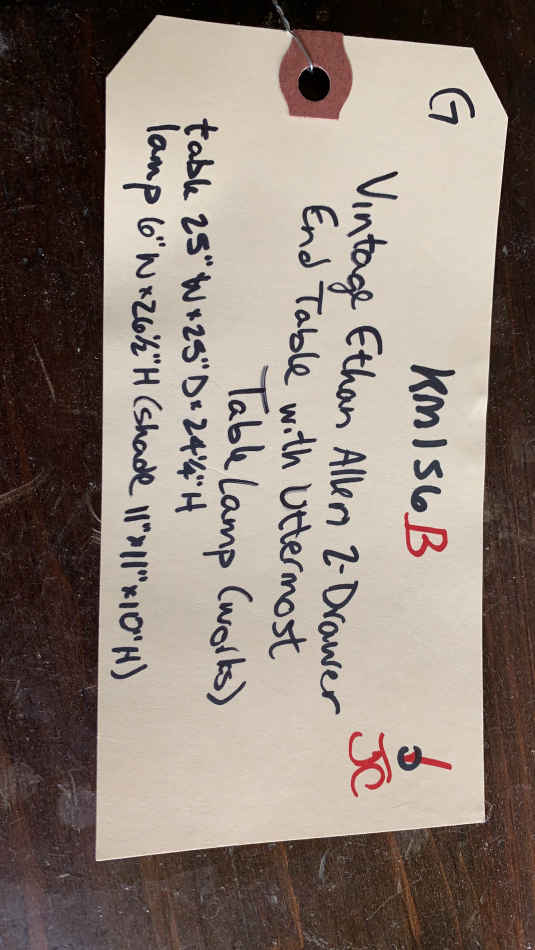 G
KM156B
JC
Vintage Ethan Allen 2-Drawer
End Table with Uttermost
Table Lamp (works)
table 25"W×25"D×24¼"H
lamp 6"W×26½"H (shade 11"×11"×10"H)